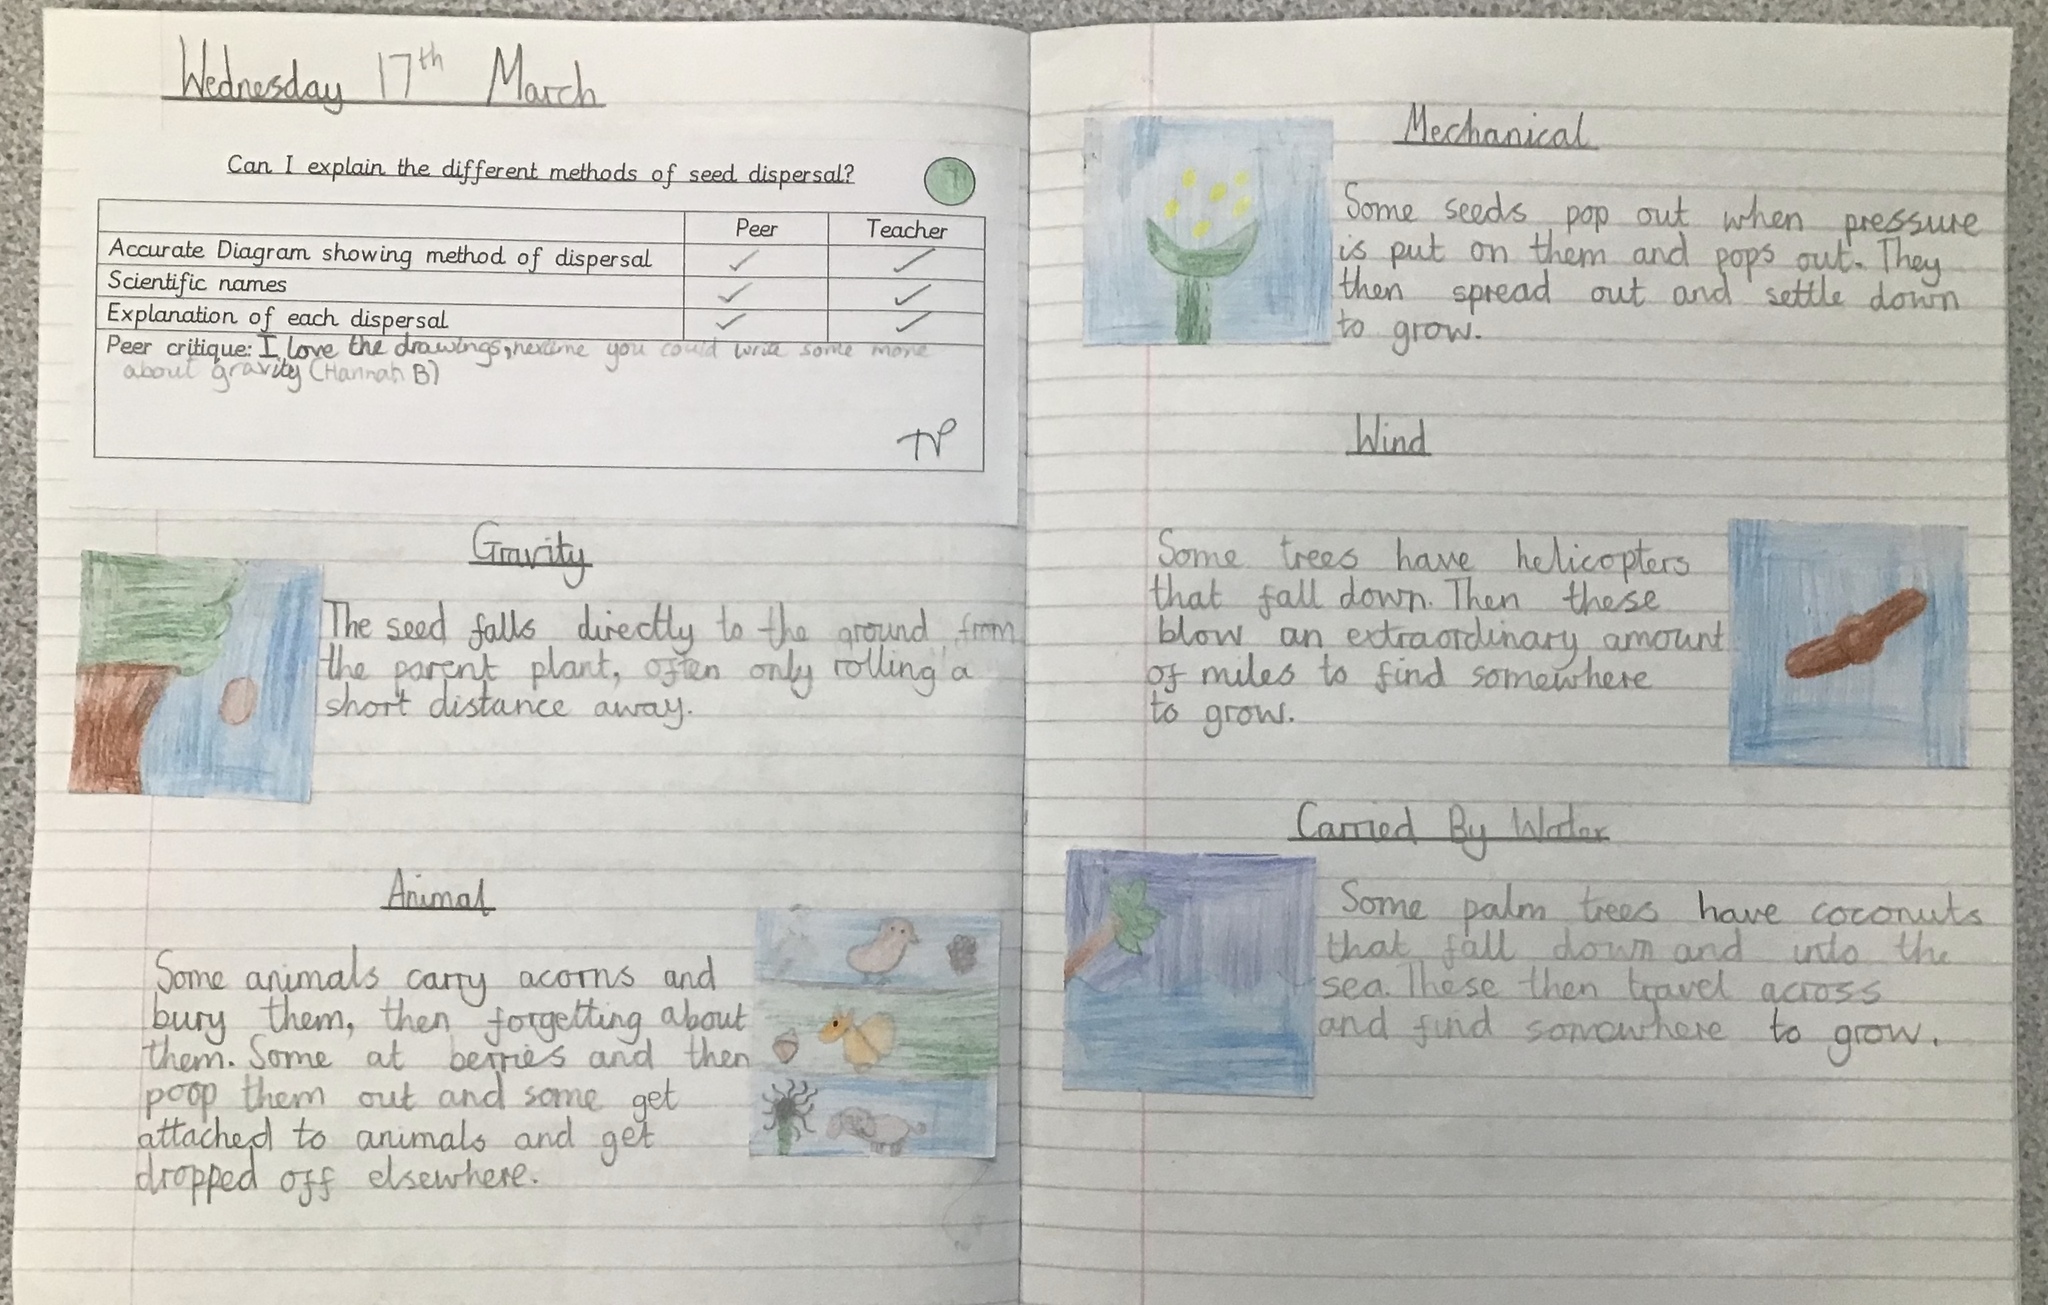 Wednesday 17th March
Can I explain the different methods of seed dispersal?
Peer Teacher
Accurate Diagram showing method of dispersal ✓ ✓
Scientific names ✓ ✓
Explanation of each dispersal ✓ ✓
Peer critique: I love the drawings, nextime you could write some more
about gravity (Hannah B)
TP
Gravity
The seed falls directly to the ground from
the parent plant, often only rolling a
short distance away.
Animal
Some animals carry acorns and
bury them, then forgetting about
them. Some at berries and then
poop them out and some get
attached to animals and get
dropped off elsewhere.
Mechanical
Some seeds pop out when pressure
is put on them and pops out. They
then spread out and settle down
to grow.
Wind
Some trees have helicopters
that fall down. Then these
blow an extraordinary amount
of miles to find somewhere
to grow.
Carried By Water
Some palm trees have coconuts
that fall down and into the
sea. These then travel across
and find somewhere to grow.